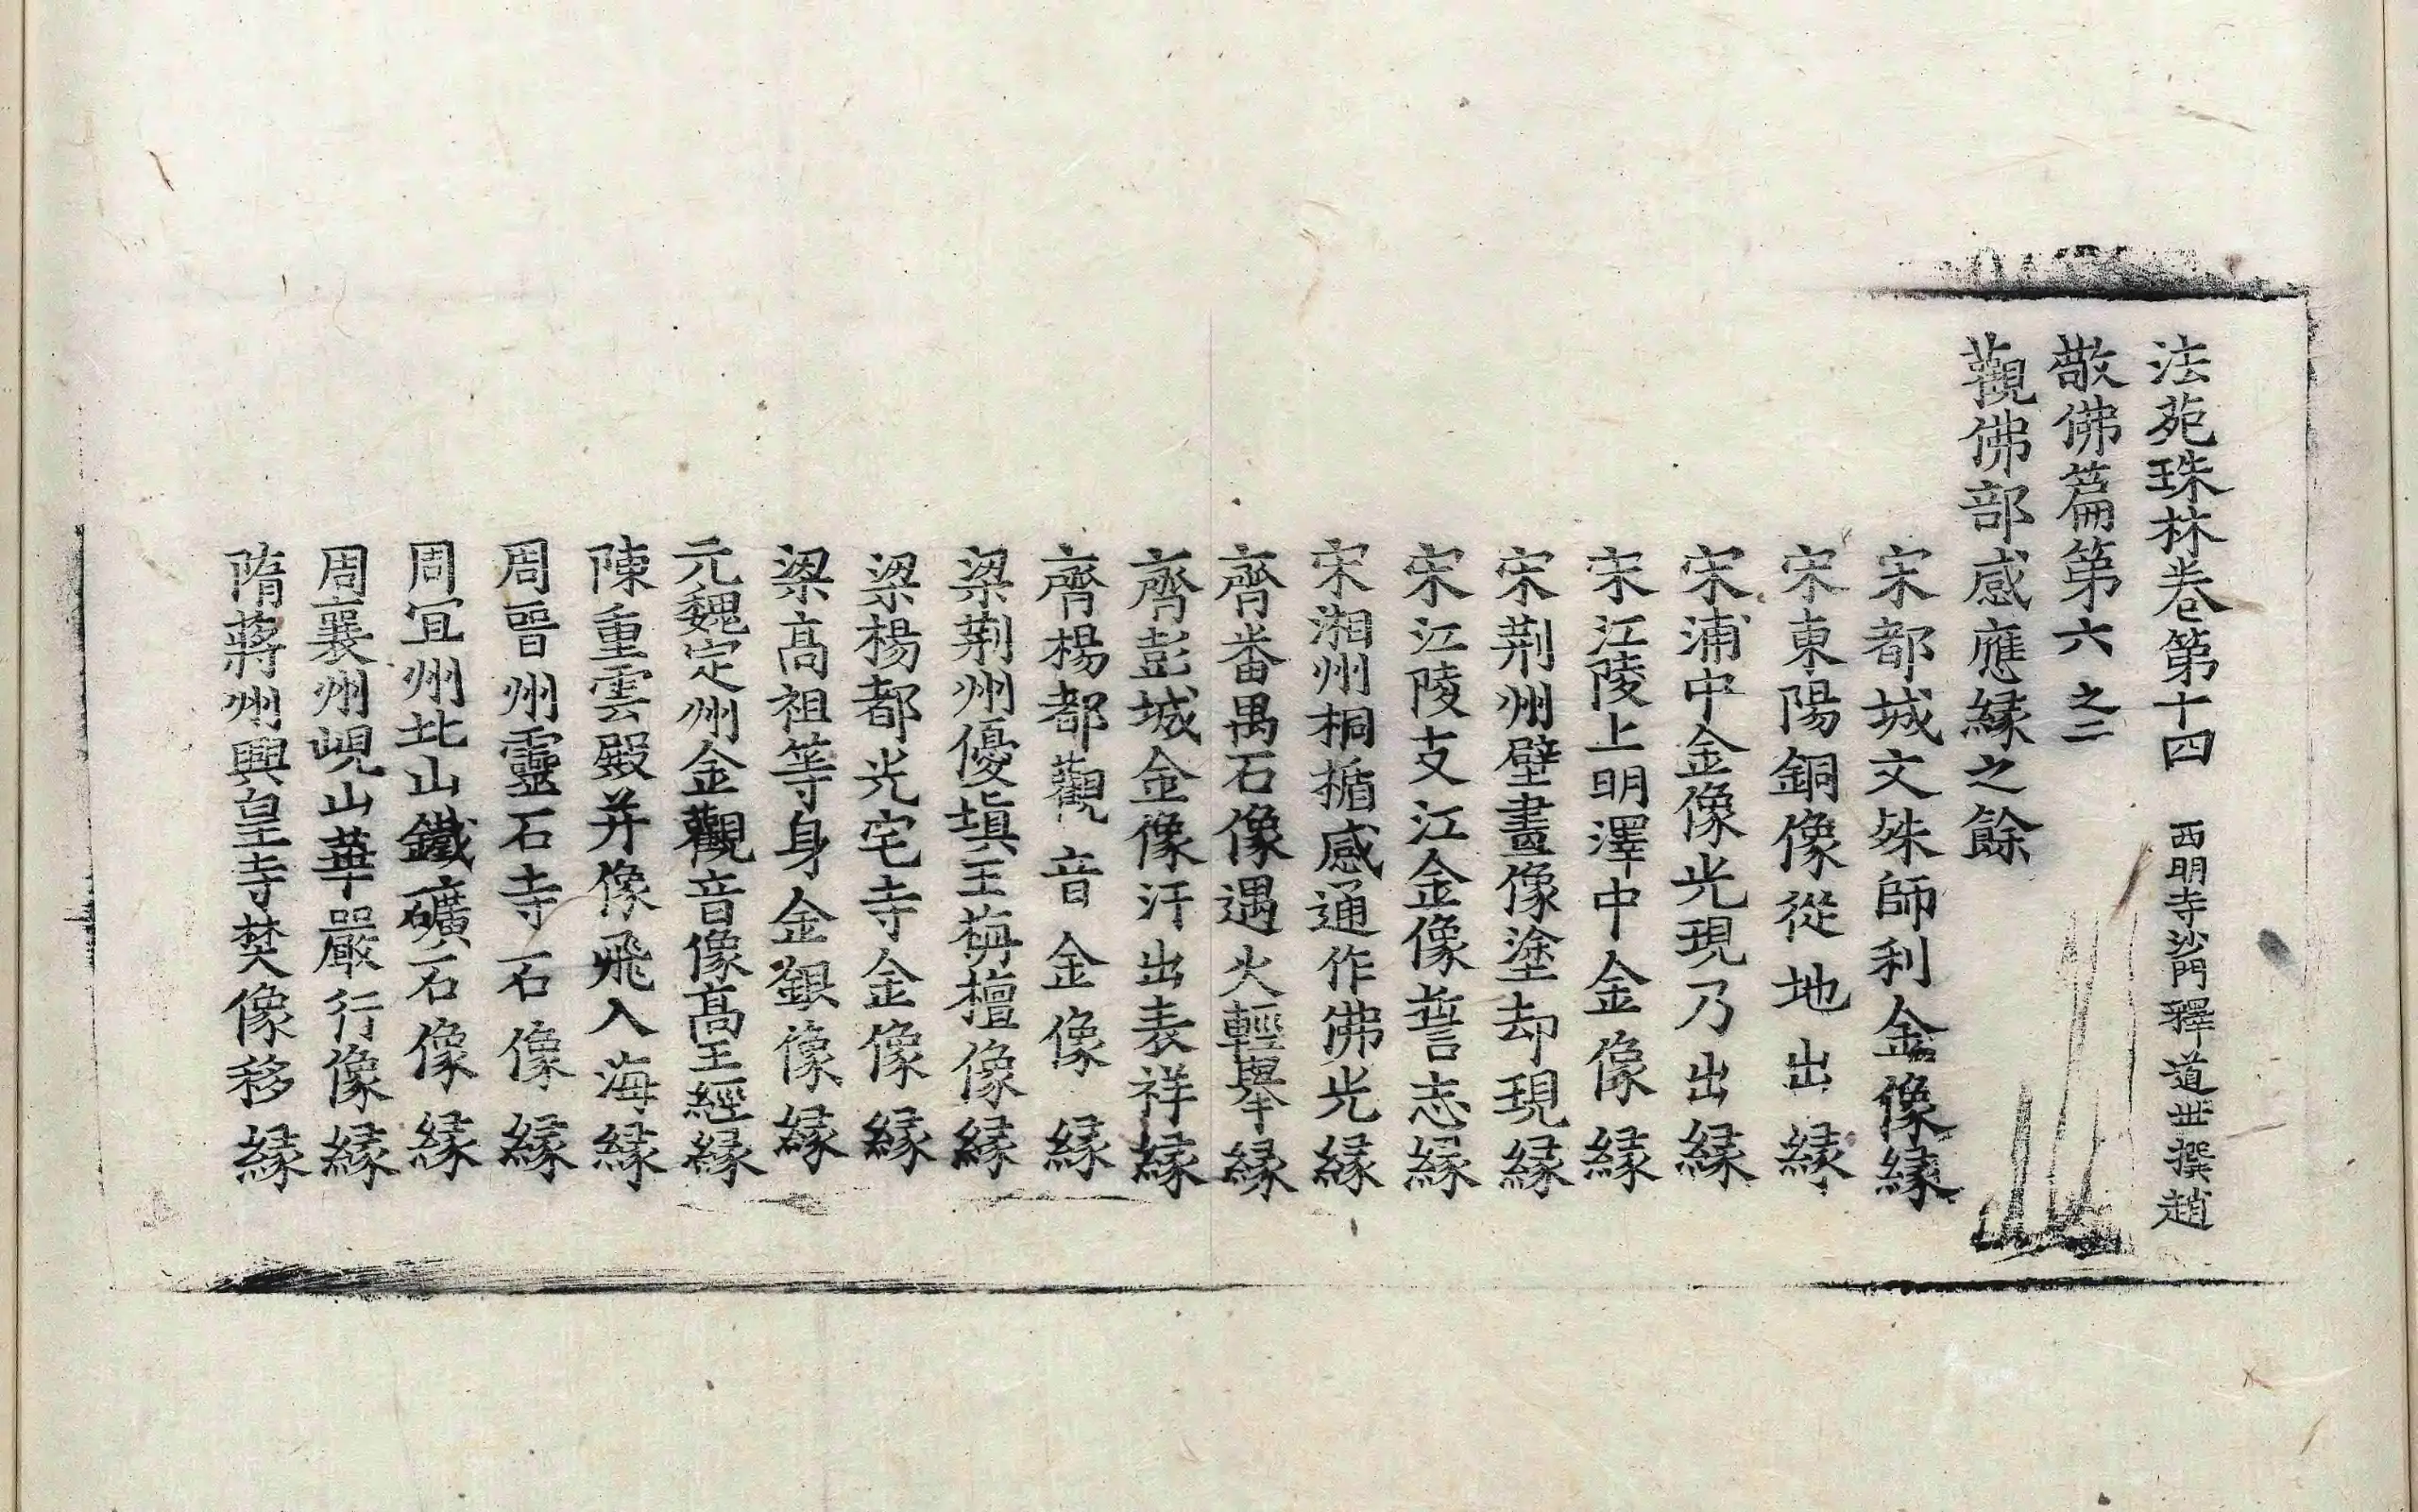 法苑珠林卷第十四 西明寺沙門釋道丗撰趙
敬佛篇第六之二
觀佛部感應縁之餘
宋都城文殊師利金像縁
宋東陽銅像從地出縁
宋浦中金像光現乃出縁
宋江陵上明澤中金像縁
宋荆州壁畫像塗却現縁
宋江陵支江金像誓志縁
宋湘州桐揗感通作佛光縁
齊番禺石像遇火輕舉縁
齊彭城金像汗出表祥縁
齊楊都觀音金像縁
梁荆州優塡王栴檀像縁
梁楊都光宅寺金像縁
梁高祖等身金銀像縁
元魏定州金觀音像高王經縁
陳重雲殿并像飛入海縁
周晉州靈石寺石像縁
周宜州北山鐵礦石像縁
周襄州峴山華嚴行像縁
隋蔣州興皇寺焚像移縁